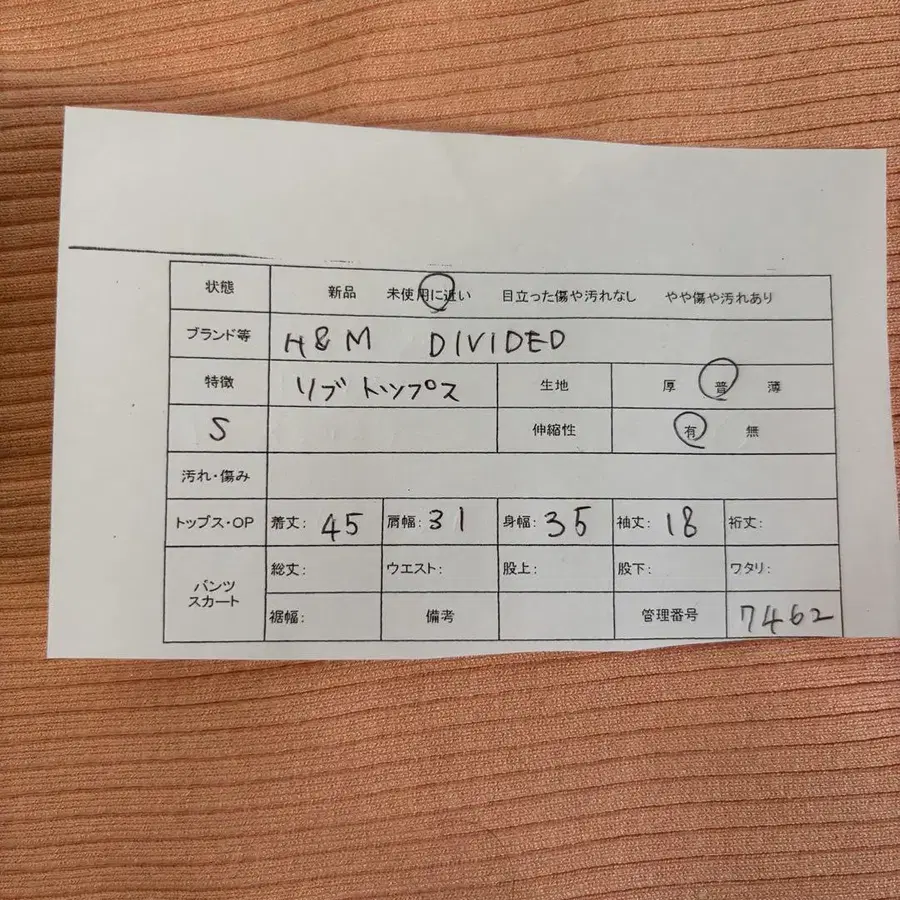 状態 新品 未使用に近い 目立った傷や汚れなし やや傷や汚れあり
ブランド等 H&M DIVIDED
特徴 リブトップス 生地 厚 普 薄
S 伸縮性 有 無
汚れ・傷み
トップス・OP 着丈: 45 肩幅: 31 身幅: 35 袖丈: 18 裄丈:
パンツ スカート 総丈: ウエスト: 股上: 股下: ワタリ:
裾幅: 備考 管理番号 7462